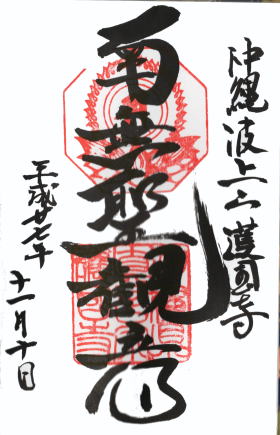 沖縄波上山護国寺
南無聖観音
平成廿七年
十一月十日